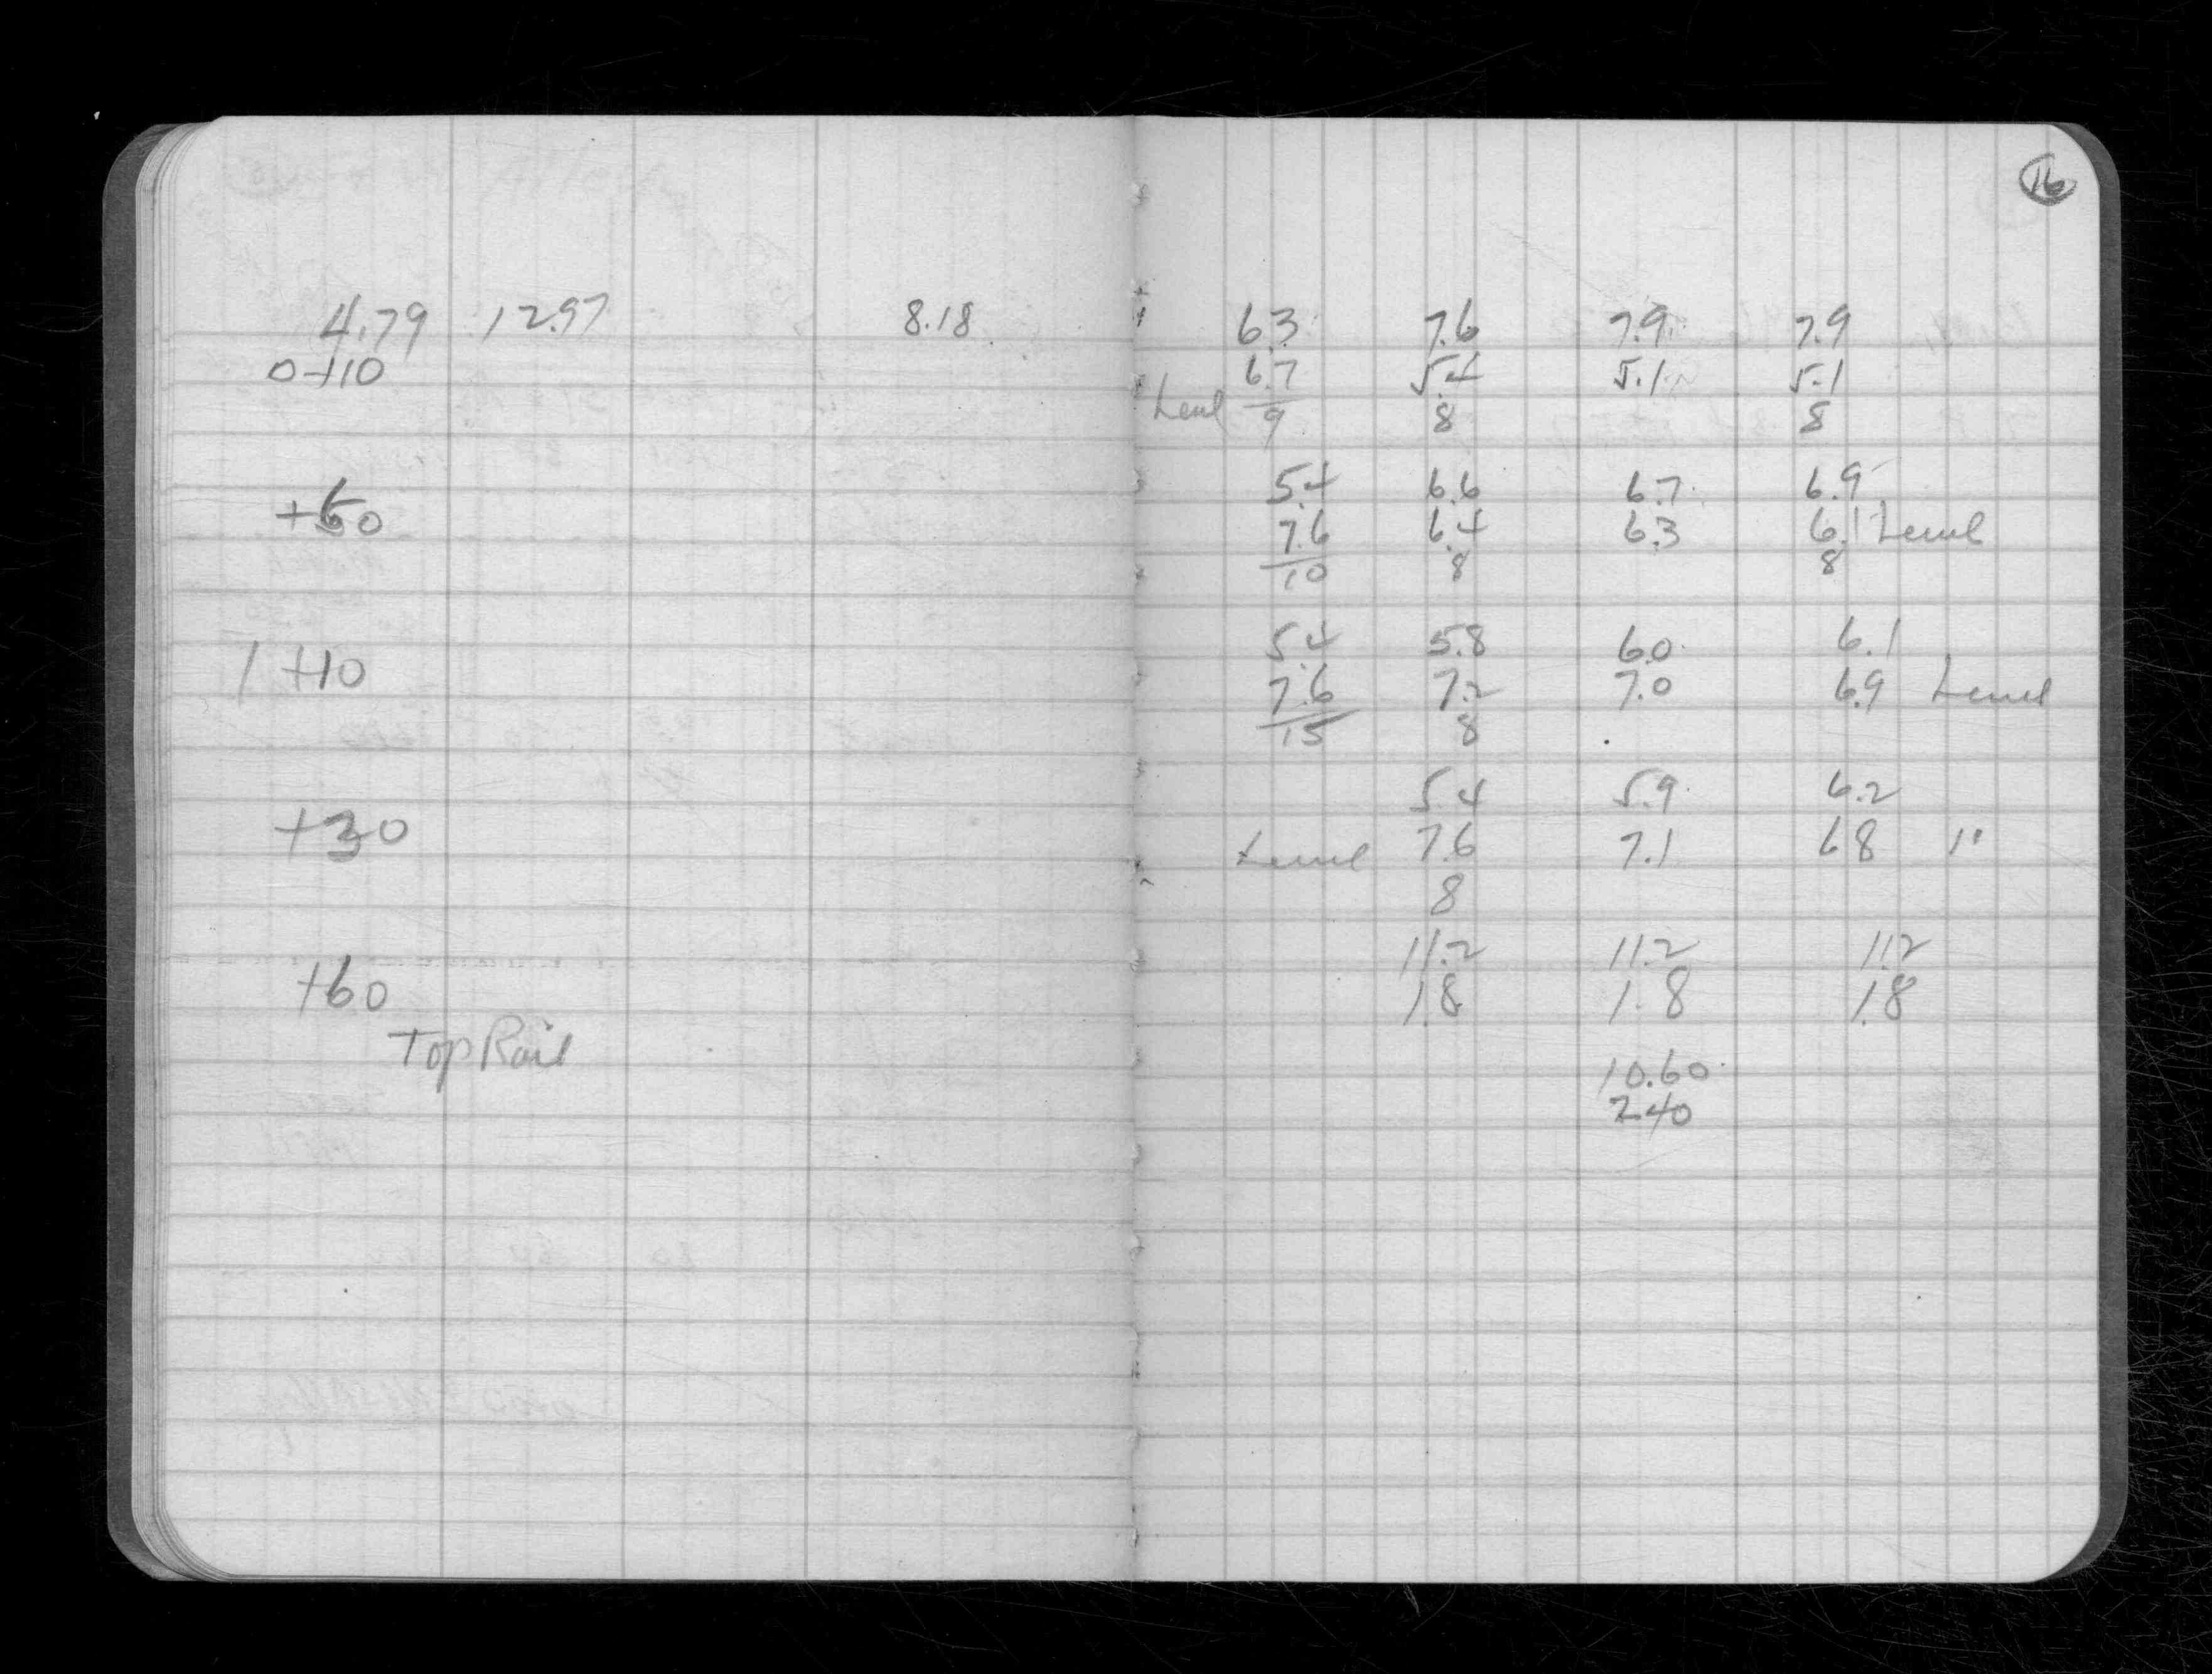 16
4.79 12.97 8.18 6.3 7.6 7.9 7.9
0+10 6.7 5.4 5.1 5.1
Level 9 8 8
5.4 6.6 6.7 6.9
+60 7.6 6.4 6.3 6.1 Level
10 8 8
5.4 5.8 6.0 6.1
1+10 7.6 7.2 7.0 6.9 Level
15 8
5.4 5.9 6.2
+30 Level 7.6 7.1 6.8 "
8
11.2 11.2 11.2
+60 1.8 1.8 1.8
Top Rail
10.60
2.40